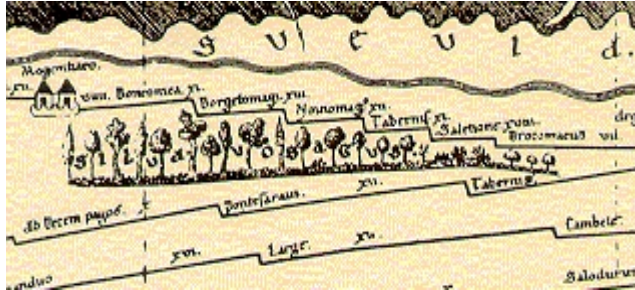 S V E V I d.
Mogontiaco.
xii. viiii. Bonconica xi. Borgetomagi. xvi. Noviomag. xii. Tabernis xi. Saletione xviii. Brocomacus vii.
Silva Vosagus
Ad Decem pagos. x Pontesaraui. xii. Tabernis
xvi. Large. xii. Cambete.
anduo Salodurum